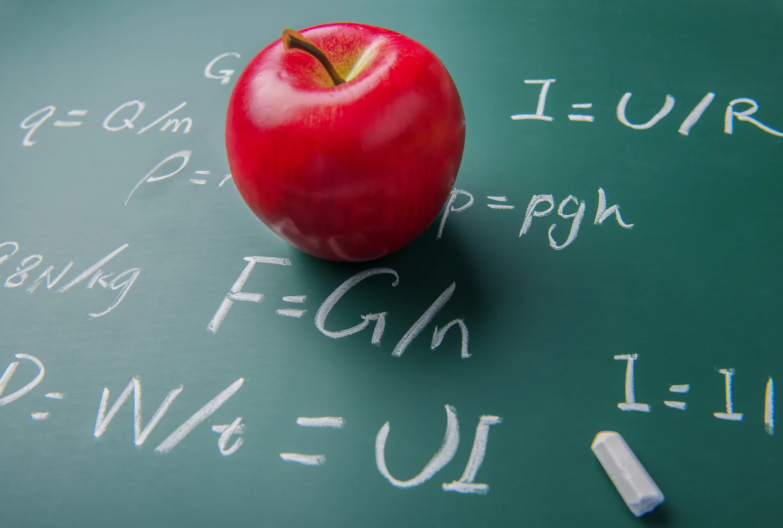 G
q = Q/m
I = U/R
ρ =
p = ρgh
8N/kg
F = G/n
P = W/t = UI
I = I